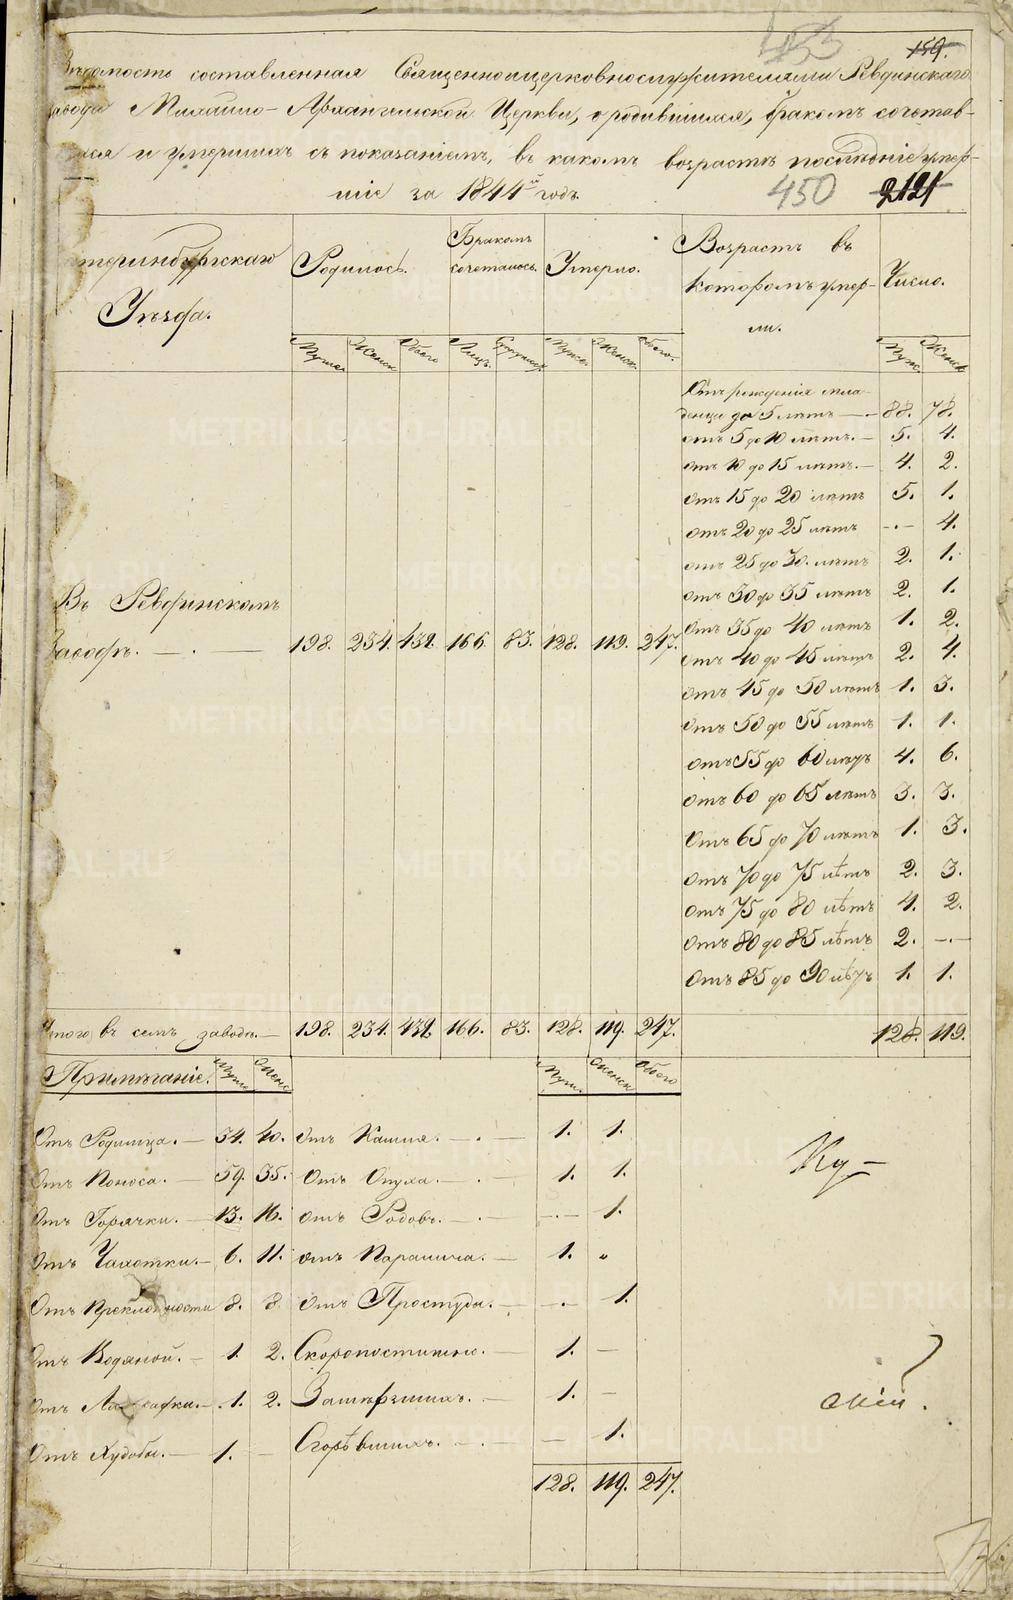 453
159.
Вѣдомость составленная Священноцерковнослужителями Ревдинскаго
завода Михайло-Архангельской Церкви, о родившихся, бракомъ сочетав-
шихся и умершихъ съ показаніемъ, въ какомъ возрастѣ послѣдніе умер-
шіе за 1844й годъ.
450 2121
Екатеринбургскаго Уѣзда.
Родилось. Бракомъ сочеталось. Умерло. Возрастъ въ которомъ умерли. Число.
Муже. Женск. Обоего Лицъ. Супруж. Муже. Женск. Обоего. Муж. Женск.
Отъ рожденія мла-
денца до 5 лѣтъ — 88. 78.
отъ 5 до 10 лѣтъ. — 5. 4.
отъ 10 до 15 лѣтъ. — 4. 2.
отъ 15 до 20 лѣтъ 5. 1.
отъ 20 до 25 лѣтъ -.- 4.
отъ 25 до 30. лѣтъ 2. 1.
отъ 30 до 35 лѣтъ 2. 1.
отъ 35 до 40 лѣтъ 1. 2.
отъ 40 до 45 лѣтъ 2. 4.
отъ 45 до 50 лѣтъ 1. 3.
отъ 50 до 55 лѣтъ 1. 1.
отъ 55 до 60 лѣтъ 4. 6.
отъ 60 до 65 лѣтъ 3. 3.
Отъ 65 до 70 лѣтъ 1. 3.
отъ 70 до 75 лѣтъ 2. 3.
отъ 75 до 80 лѣтъ 4. 2.
отъ 80 до 85 лѣтъ 2. -.-
отъ 85 до 90 лѣтъ 1. 1.
Въ Ревдинскомъ
Заводѣ. — . — 198. 234. 432. 166. 83. 128. 119. 247.
Итого въ семъ заводѣ. — 198. 234. 432. 166. 83. 128. 119. 247. 128. 119.
Примѣчаніе. Муже Женс Муж. Женск Обоего
Отъ Родимца. — 34. 40. отъ Кашля. — . — 1. 1.
Отъ Поноса. — 59. 35. отъ Опуха. — . — 1. 1.
Отъ Горячки. — 13. 16. отъ Родовъ. — . — -.- 1.
Отъ Чахотки. — 6. 11. отъ Паралича. — 1. „
Отъ Преклонности 8. 8. отъ Простуды. — -.- 1.
Отъ Водяной. — 1. 2. Скоропостижно. — 1. —
Отъ 1. 2. 1. —
Отъ Худобы. — 1. — Сгорѣвшихъ. — . — — 1.
128. 119. 247.
Ку -
скій.
METRIKI.GASO-URAL.RU